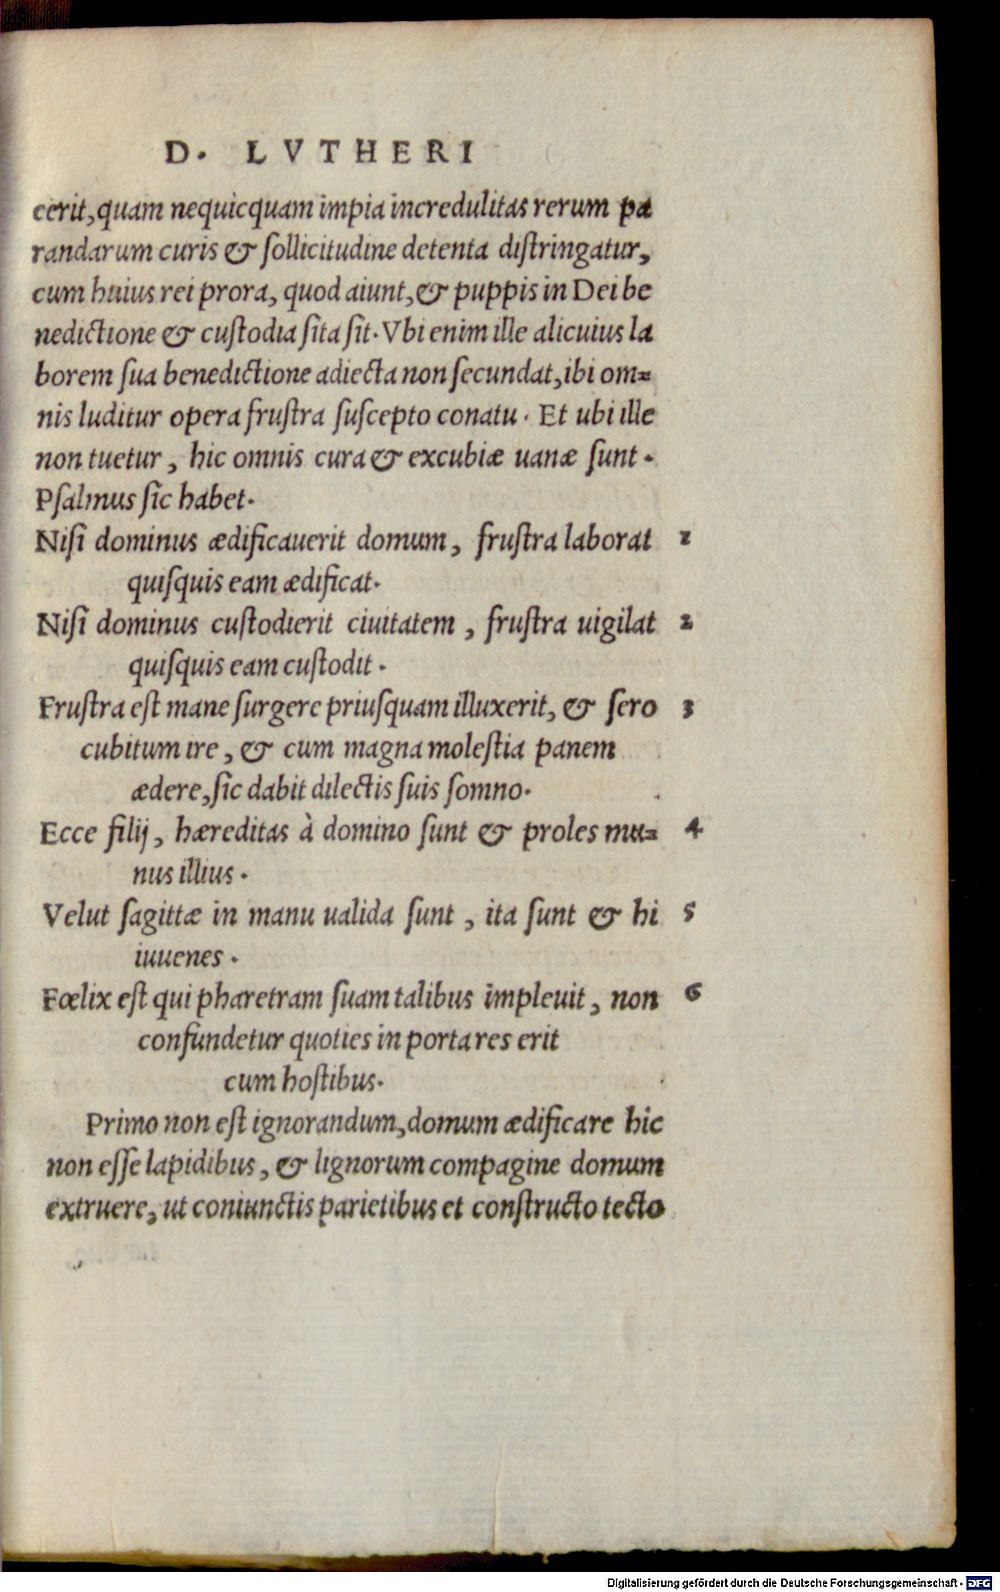 D. LVTHERI
cerit, quam nequicquam impia incredulitas rerum pa
randarum curis & sollicitudine detenta distringatur,
cum huius rei prora, quod aiunt, & puppis in Dei be
nedictione & custodia sita sit. Vbi enim ille alicuius la
borem sua benedictione adiecta non secundat, ibi om=
nis luditur opera frustra suscepto conatu. Et ubi ille
non tuetur, hic omnis cura & excubiæ uanæ sunt.
Psalmus sic habet.
Nisi dominus ædificauerit domum, frustra laborat 1
quisquis eam ædificat.
Nisi dominus custodierit ciuitatem, frustra uigilat 2
quisquis eam custodit.
Frustra est mane surgere priusquam illuxerit, & sero 3
cubitum ire, & cum magna molestia panem
ædere, sic dabit dilectis suis somno.
Ecce filij, hæreditas à domino sunt & proles mu= 4
nus illius.
Velut sagittæ in manu ualida sunt, ita sunt & hi 5
iuuenes.
Fœlix est qui pharetram suam talibus impleuit, non 6
confundetur quoties in porta res erit
cum hostibus.
Primo non est ignorandum, domum ædificare hic
non esse lapidibus, & lignorum compagine domum
extruere, ut coniunctis parietibus et constructo tecto
Digitalisierung gefördert durch die Deutsche Forschungsgemeinschaft - DFG